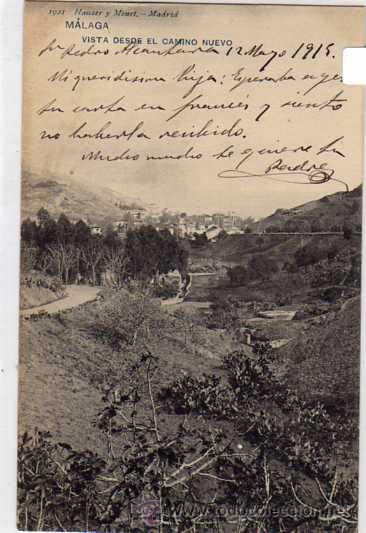 1921 Hauser y Menet.-Madrid
MÁLAGA
VISTA DESDE EL CAMINO NUEVO
Sn Pedro Alcantara 12 Mayo 1915.
Mi queridisima hija: Esperaba ayer
su carta en francés y siento
no haberla recibido.
Mucho mucho te quiere tu
Padre
todocoleccion.net